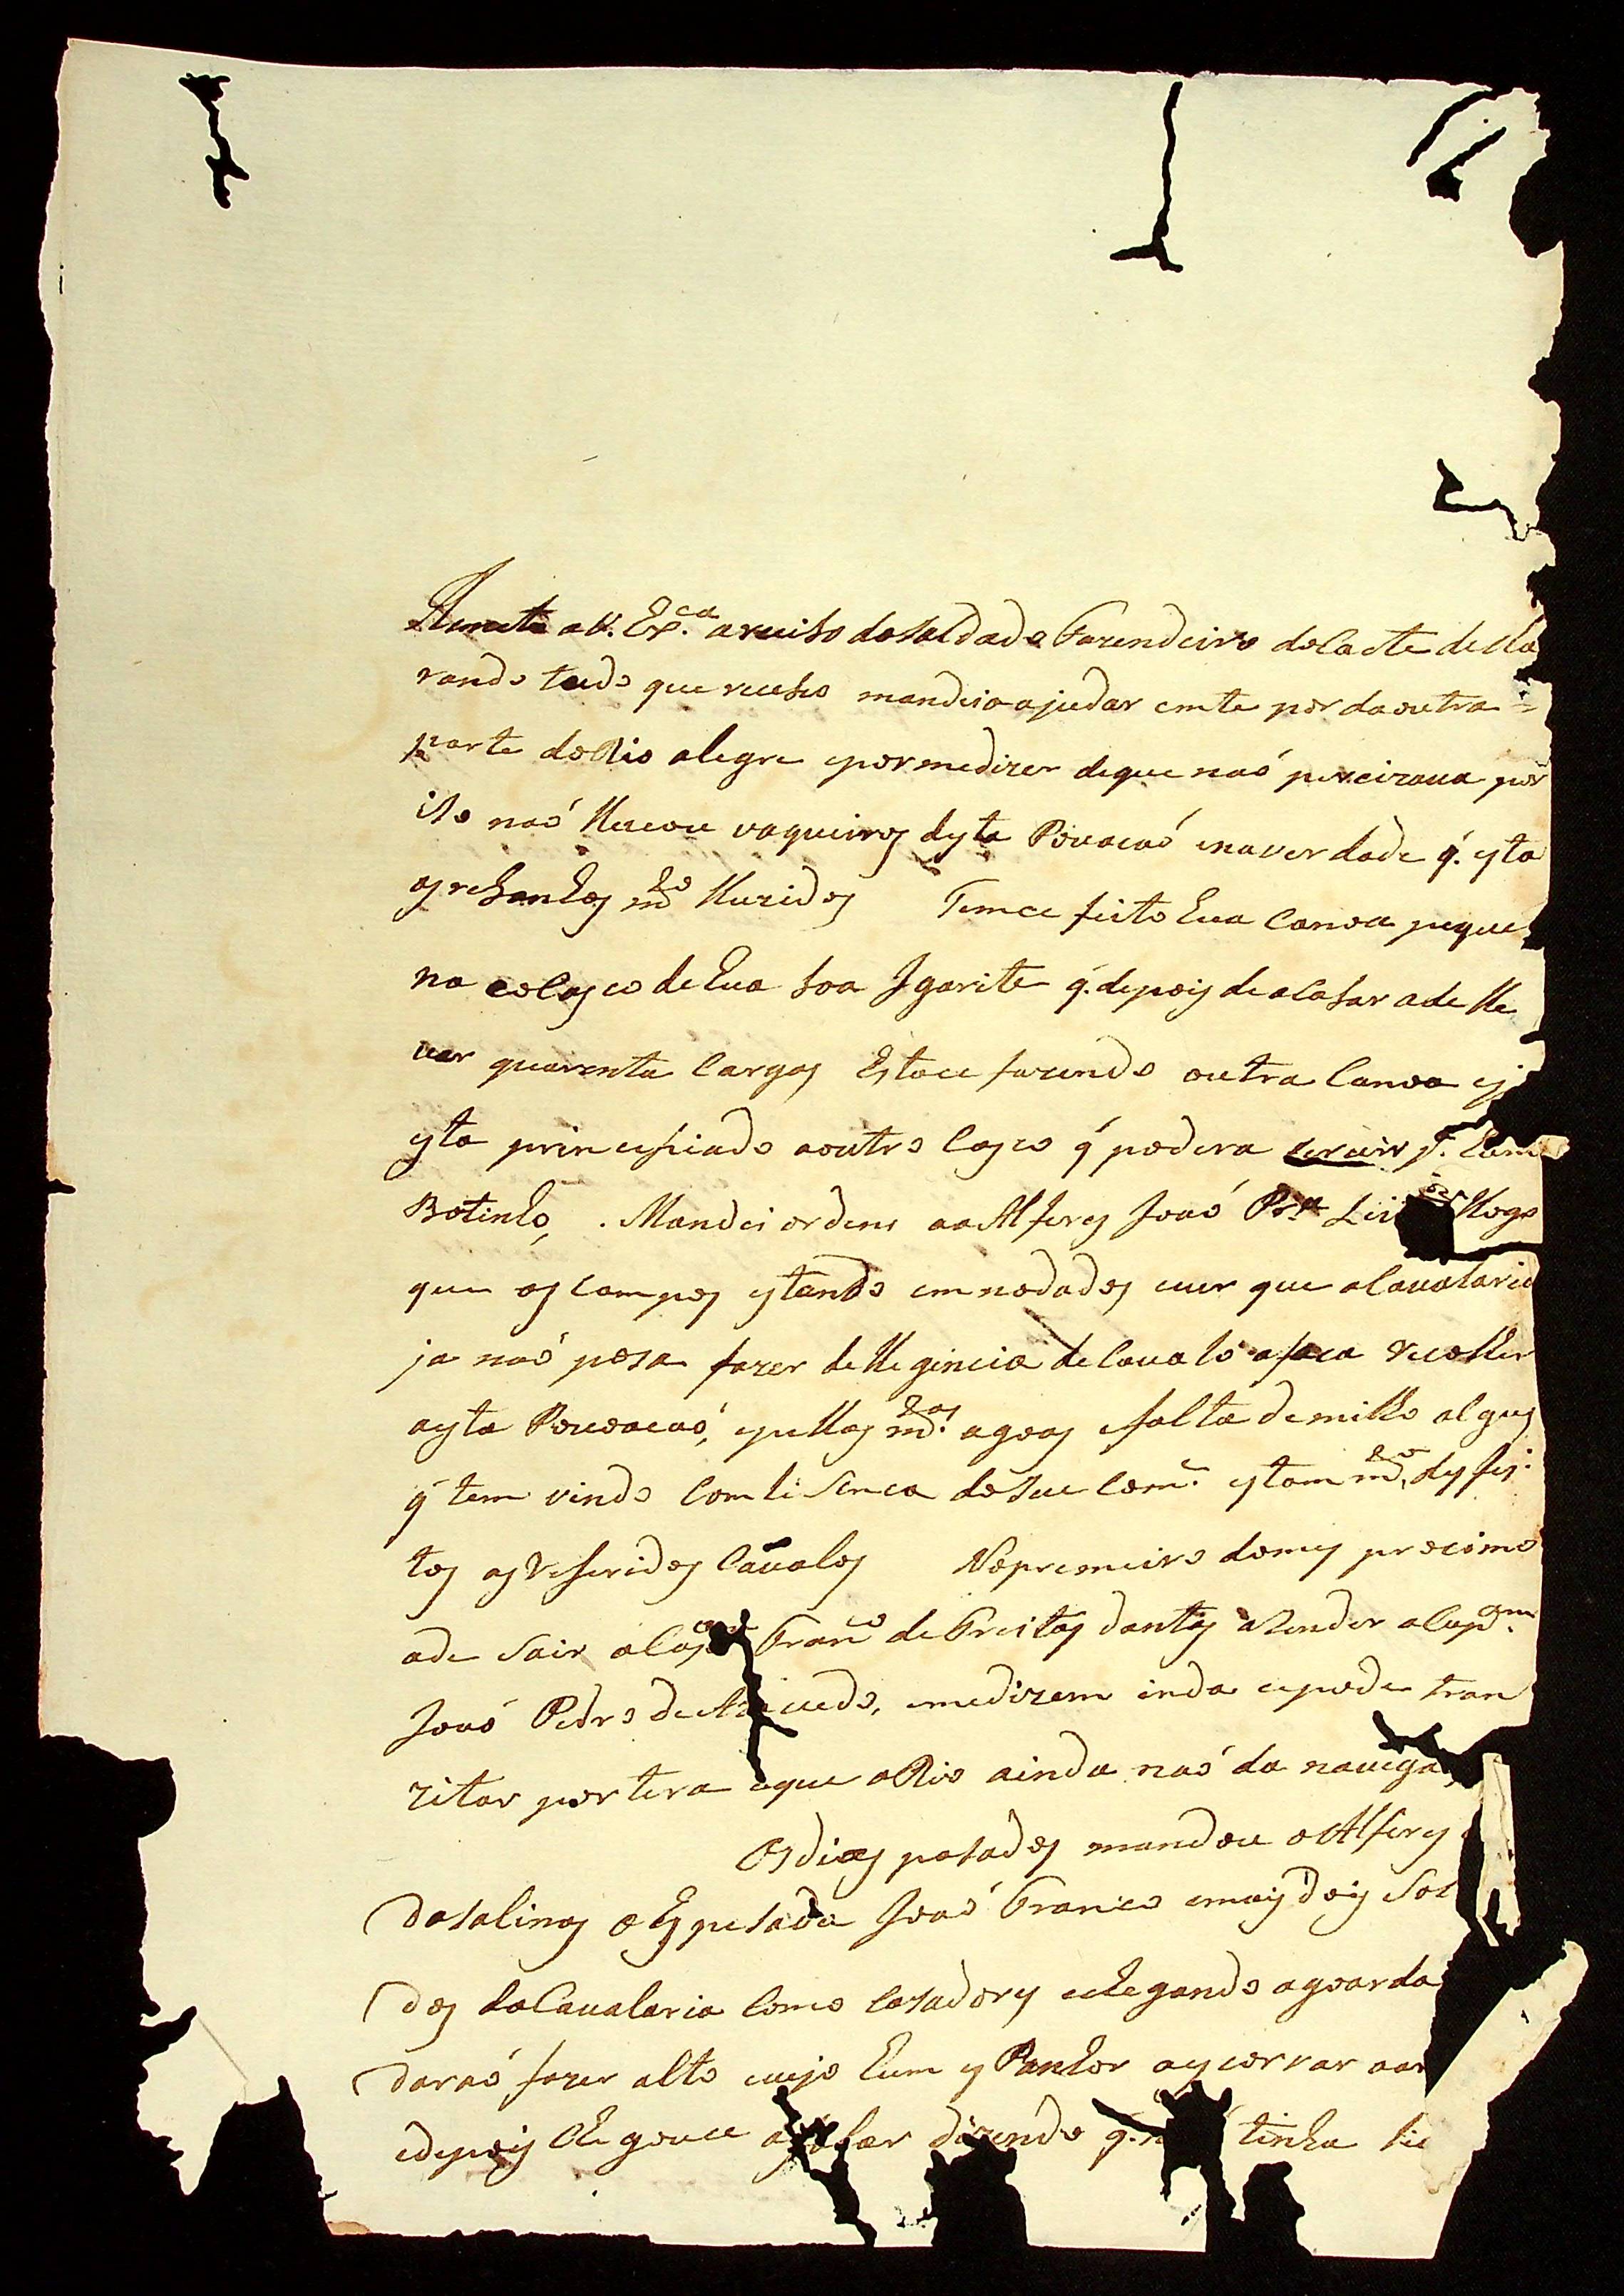 Remeto a V. Ex.ca a reciso do soldado Fazendeiro do Caste decla
rando tudo que receho mandeio ajudar emte por da outra
parte do Rio alegre epor medizer deque naó percizava por
iso naó lleuou vaqueiros desta Povacaó enaverdade q̃. esta
os rebanhos m.do lluzidos Temce feito hua Canoa peque
na eo Casco de hua boa Igarite q̃. depois de acabar ade lle
uar quarenta Cargas Estace fazendo outra Canoa ej
esta principiado aoutro Casco q̃ podera seruir p.a hum
Botinho, . Mandei ordens ao Alferes Joaó Pr.a Lei llogo
que os Campos estando emnodados euer que a Caualaria
ja naó posa fazer dellegincia de Caualo afaca recolher
aesta Povoacaó, epellas m.das agoas efalta de milho algus
q̃ tem vindo Com lisenca do seu Com.e estam m.do desfei
tos os Referidos Caualos No premeiro do mes procimo
ade Sair o Fran.co de Freitas dantes aRender a Cap.am
Joaó Pedro de Azeuedo, emedizem inda cepode tran
zitar por tera eque o Rio ainda naó da nauega
Os dias pasados mandou o Alferes
da salinas o Espesada Joaó Franco emais dois Sol
dos da Caualaria Como Casadores echegando agoarda
daraó fazer alto cujo hum es Panhol aescorvar aar
edepois Chegouce afalar dizendo q̃. tinha lic